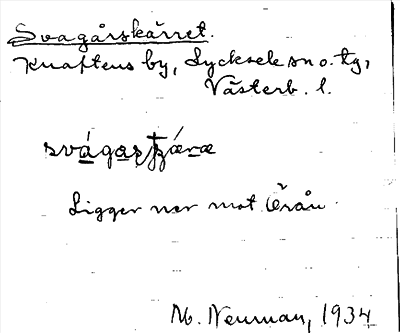 Svagårskärret.
Knaftens by, Lycksele sn o. tg,
Västerb. l.
Ligger ner mot Örån.
M. Neuman, 1934